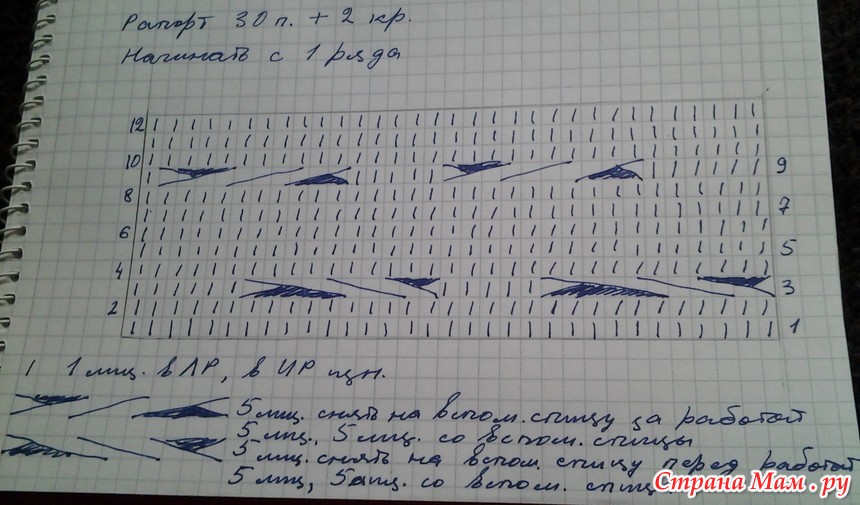 Рапорт 30 п. + 2 кр.
Начинать с 1 ряда
12
10 9
8
7
6
5
4
3
2
1
| 1 лиц. в ЛР, в ИР изн.
5 лиц. снять на вспом. спицу за работой
5 лиц., 5 лиц. со вспом. спицы
5 лиц. снять на вспом. спицу перед работой
5 лиц, 5 лиц. со вспом. спиц
Страна Мам.ру